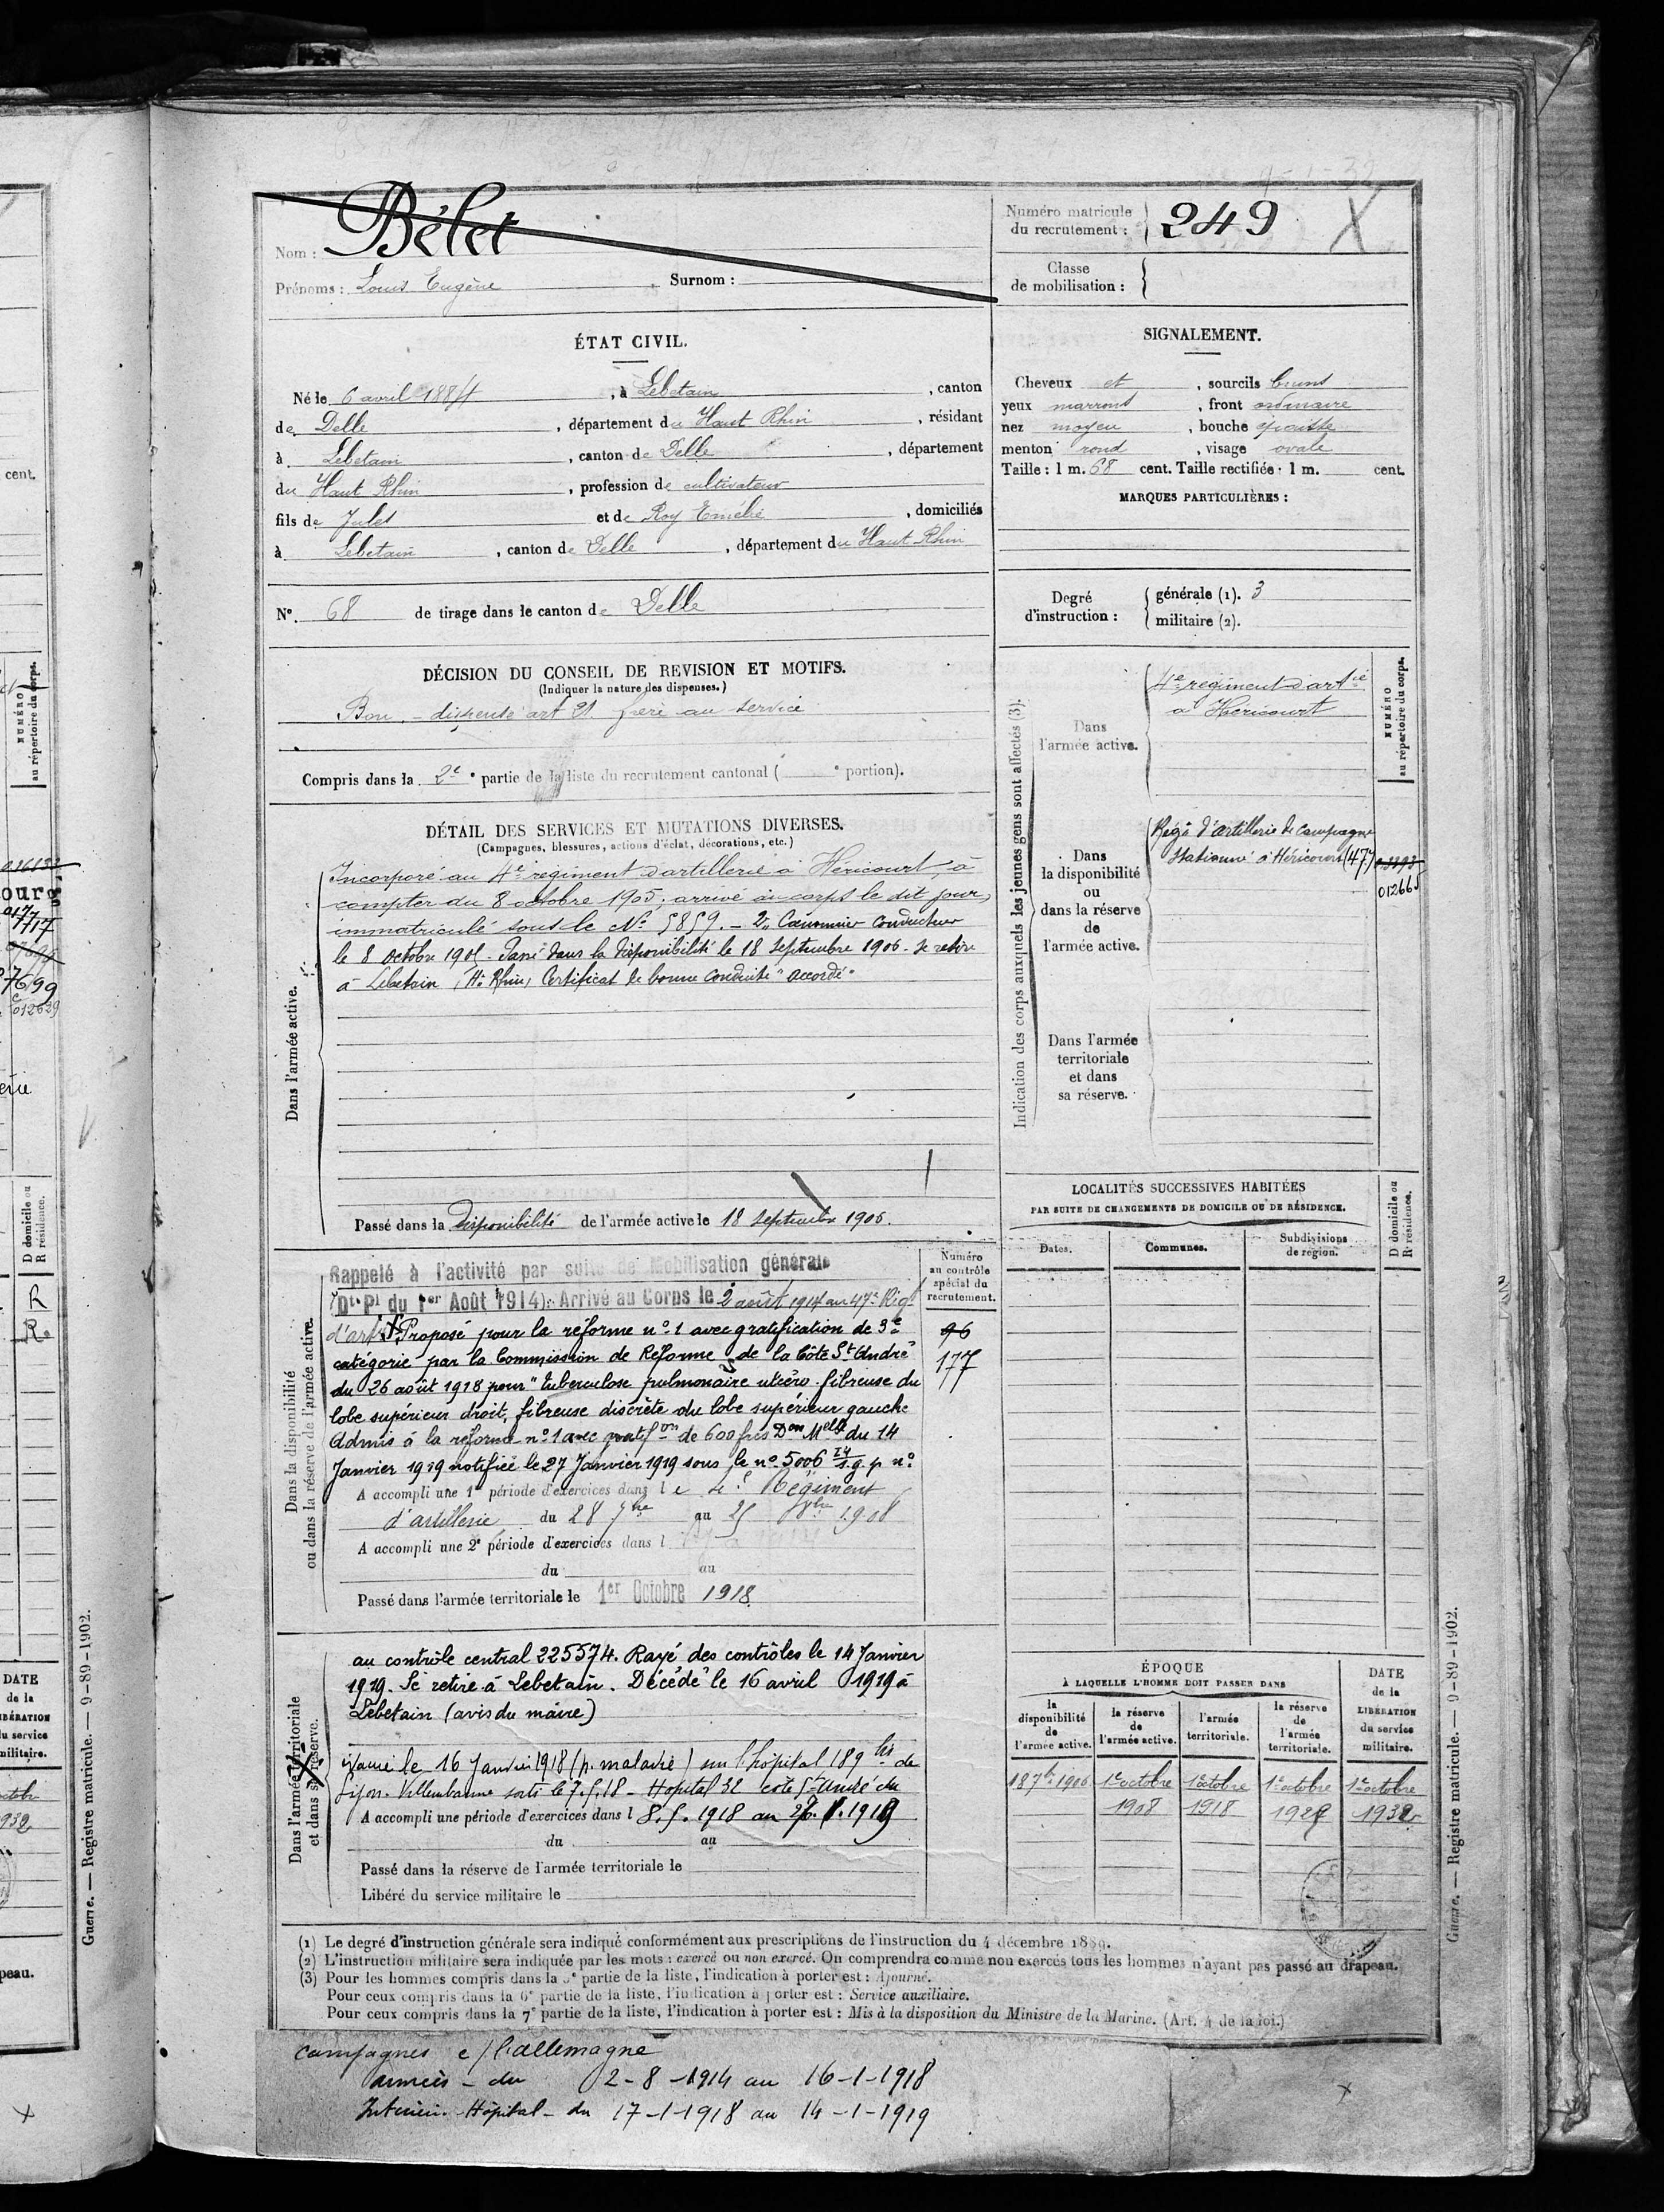 Nom : Bélet
Prénoms : Louis Eugène Surnom :
Numéro matricule
du recrutement : 249 X
Classe
de mobilisation :
ÉTAT CIVIL.
Né le 6 avril 1884, à Lebetain, canton
de Delle, département du Haut Rhin, résidant
à Lebetain, canton de Delle, département
du Haut Rhin, profession de cultivateur
fils de Jules et de Roy Emélie, domiciliés
à Lebetain, canton de Delle, département du Haut Rhin
N° 68 de tirage dans le canton de Delle
SIGNALEMENT.
Cheveux et, sourcils bruns
yeux marrons, front ordinaire
nez moyen, bouche épaisse
menton rond, visage ovale
Taille : 1 m. 68 cent. Taille rectifiée : 1 m. cent.
MARQUES PARTICULIÈRES :
Degré
d'instruction :
générale (1). 3
militaire (2).
DÉCISION DU CONSEIL DE REVISION ET MOTIFS.
(Indiquer la nature des dispenses.)
Bon. – dispensé art 21. frère au service
Compris dans la 2e e partie de la liste du recrutement cantonal ( e portion).
DÉTAIL DES SERVICES ET MUTATIONS DIVERSES.
(Campagnes, blessures, actions d'éclat, décorations, etc.)
Dans l'armée active.
Incorporé au 4e régiment d'artillerie à Héricourt, à
compter du 8 octobre 1905, arrivé au corps le dit jour,
immatriculé sous le No 5859. – 2e Canonnier Conducteur
le 8 octobre 1905 – Passé dans la disponibilité le 18 septembre 1906 – Se retire
à Lebetain, Ht Rhin, Certificat de bonne conduite "accordé"
Passé dans la Disponibilité de l'armée active le 18 septembre 1906.
Indication des corps auxquels les jeunes gens sont affectés (3).
NUMÉRO
au répertoire du corps.
Dans
l'armée active.
4e régiment d'artie
à Héricourt
Dans
la disponibilité
ou
dans la réserve
de
l'armée active.
Régt d'artillerie de campagne
stationné à Héricourt (47)
012665
Dans l'armée
territoriale
et dans
sa réserve.
LOCALITÉS SUCCESSIVES HABITÉES
PAR SUITE DE CHANGEMENTS DE DOMICILE OU DE RÉSIDENCE.
Dates. Communes. Subdivisions
de région.
D domicile ou
R résidence.
Dans la disponibilité
ou dans la réserve de l'armée active.
Numéro
au contrôle
spécial du
recrutement.
96
177
Rappelé à l'activité par suite de Mobilisation générale
(Dt. Pl du 1er Août 1914). Arrivé au Corps le 2 août 1914 au 47e Rég.
d'art. X Proposé pour la réforme n° 1 avec gratification de 3e
catégorie par la Commission de Réforme de la Côte St André
du 26 août 1918 pour "tuberculose pulmonaire ulcéro-fibreuse du
lobe supérieur droit, fibreuse discrète du lobe supérieur gauche
Admis à la réforme n° 1 avec gratifon de 600 frs Don Melle du 14
Janvier 1919 notifiée le 27 Janvier 1919 sous le n° 5006 s.g.p n°
A accompli une 1e période d'exercices dans le 4e Régiment
d'artillerie du 28 7bre au 25 8bre 1908
A accompli une 2e période d'exercices dans l
du au
Passé dans l'armée territoriale le 1er Octobre 1918
Dans l'armée territoriale
et dans sa réserve.
au contrôle central 225574. Rayé des contrôles le 14 Janvier
1919. Se retire à Lebetain. Décédé le 16 avril 1919 à
Lebetain (avis du maire)
X évacué le 16 Janvier 1918 (p. maladie) sur l'hôpital 189 bis de
Lyon-Villeurbanne sorti le 7.5.18 – Hopital 32 côte St André du
A accompli une période d'exercices dans l 8.5.1918 au
du au
Passé dans la réserve de l'armée territoriale le
Libéré du service militaire le
ÉPOQUE
À LAQUELLE L'HOMME DOIT PASSER DANS
la
disponibilité
de
l'armée active.
la réserve
de
l'armée active.
l'armée
territoriale.
la réserve
de
l'armée
territoriale.
DATE
de la
LIBÉRATION
du service
militaire.
18 7bre 1906 1er octobre 1er octobre 1er octobre 1er octobre
1908 1918
(1) Le degré d'instruction générale sera indiqué conformément aux prescriptions de l'instruction du 4 décembre 1889.
(2) L'instruction militaire sera indiquée par les mots : exercé ou non exercé. On comprendra comme non exercés tous les hommes n'ayant pas passé au drapeau.
(3) Pour les hommes compris dans la 5e partie de la liste, l'indication à porter est : Ajourné.
Pour ceux compris dans la 6e partie de la liste, l'indication à porter est : Service auxiliaire.
Pour ceux compris dans la 7e partie de la liste, l'indication à porter est : Mis à la disposition du Ministre de la Marine. (Art. 4 de la loi.)
Campagnes c/ l'allemagne
armées – du 2-8-1914 au 16-1-1918
Intérieur. Hôpital – du 17-1-1918 au 14-1-1919
Guerre. — Registre matricule. — 9-89-1902.
cent.
NUMÉRO
au répertoire du corps.
ourg
1717
7699
012629
D domicile ou
R résidence.
R
R
DATE
de la
LIBÉRATION
du service
militaire.
peau.
Guerre. — Registre matricule. — 9-89-1902.